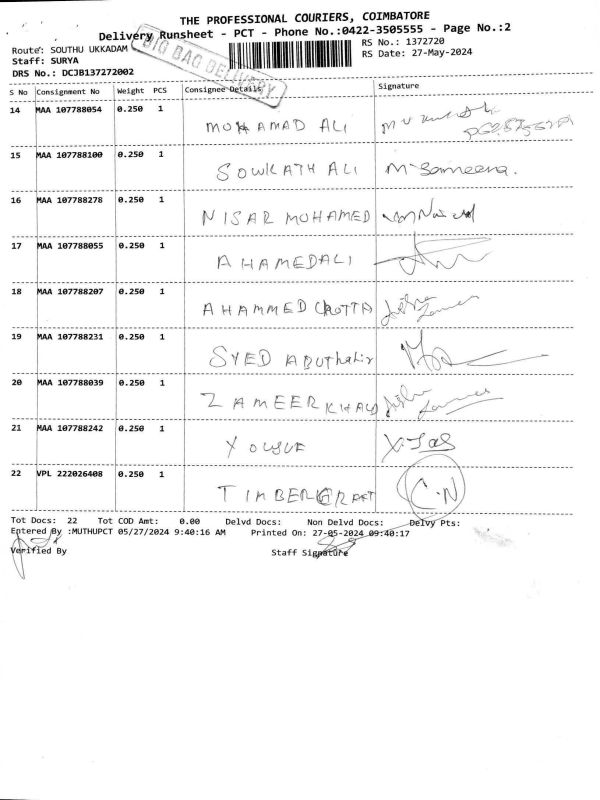 THE PROFESSIONAL COURIERS, COIMBATORE
Delivery Runsheet - PCT - Phone No.:0422-3505555 - Page No.:2
Route: SOUTHU UKKADAM
RS No.: 1372720
Staff: SURYA
RS Date: 27-May-2024
DRS No.: DCJB137272002
BIG BAG DELIVERY
S No Consignment No Weight PCS Consignee Details Signature
14 MAA 107788054 0.250 1 MOHAMAD ALI
15 MAA 107788100 0.250 1 SOWKATH ALI M-Sameena.
16 MAA 107788278 0.250 1 NISAR MOHAMED
17 MAA 107788055 0.250 1 AHAMEDALI
18 MAA 107788207 0.250 1 AHAMMED
19 MAA 107788231 0.250 1 SYED ABUThahir
20 MAA 107788039 0.250 1 ZAMEER KHAN
21 MAA 107788242 0.250 1 YOUSUF
22 VPL 222026408 0.250 1 TIMBER C.N
Tot Docs: 22 Tot COD Amt: 0.00 Delvd Docs: Non Delvd Docs: Delvy Pts:
Entered By :MUTHUPCT 05/27/2024 9:40:16 AM Printed On: 27-05-2024 09:40:17
Verified By Staff Signature